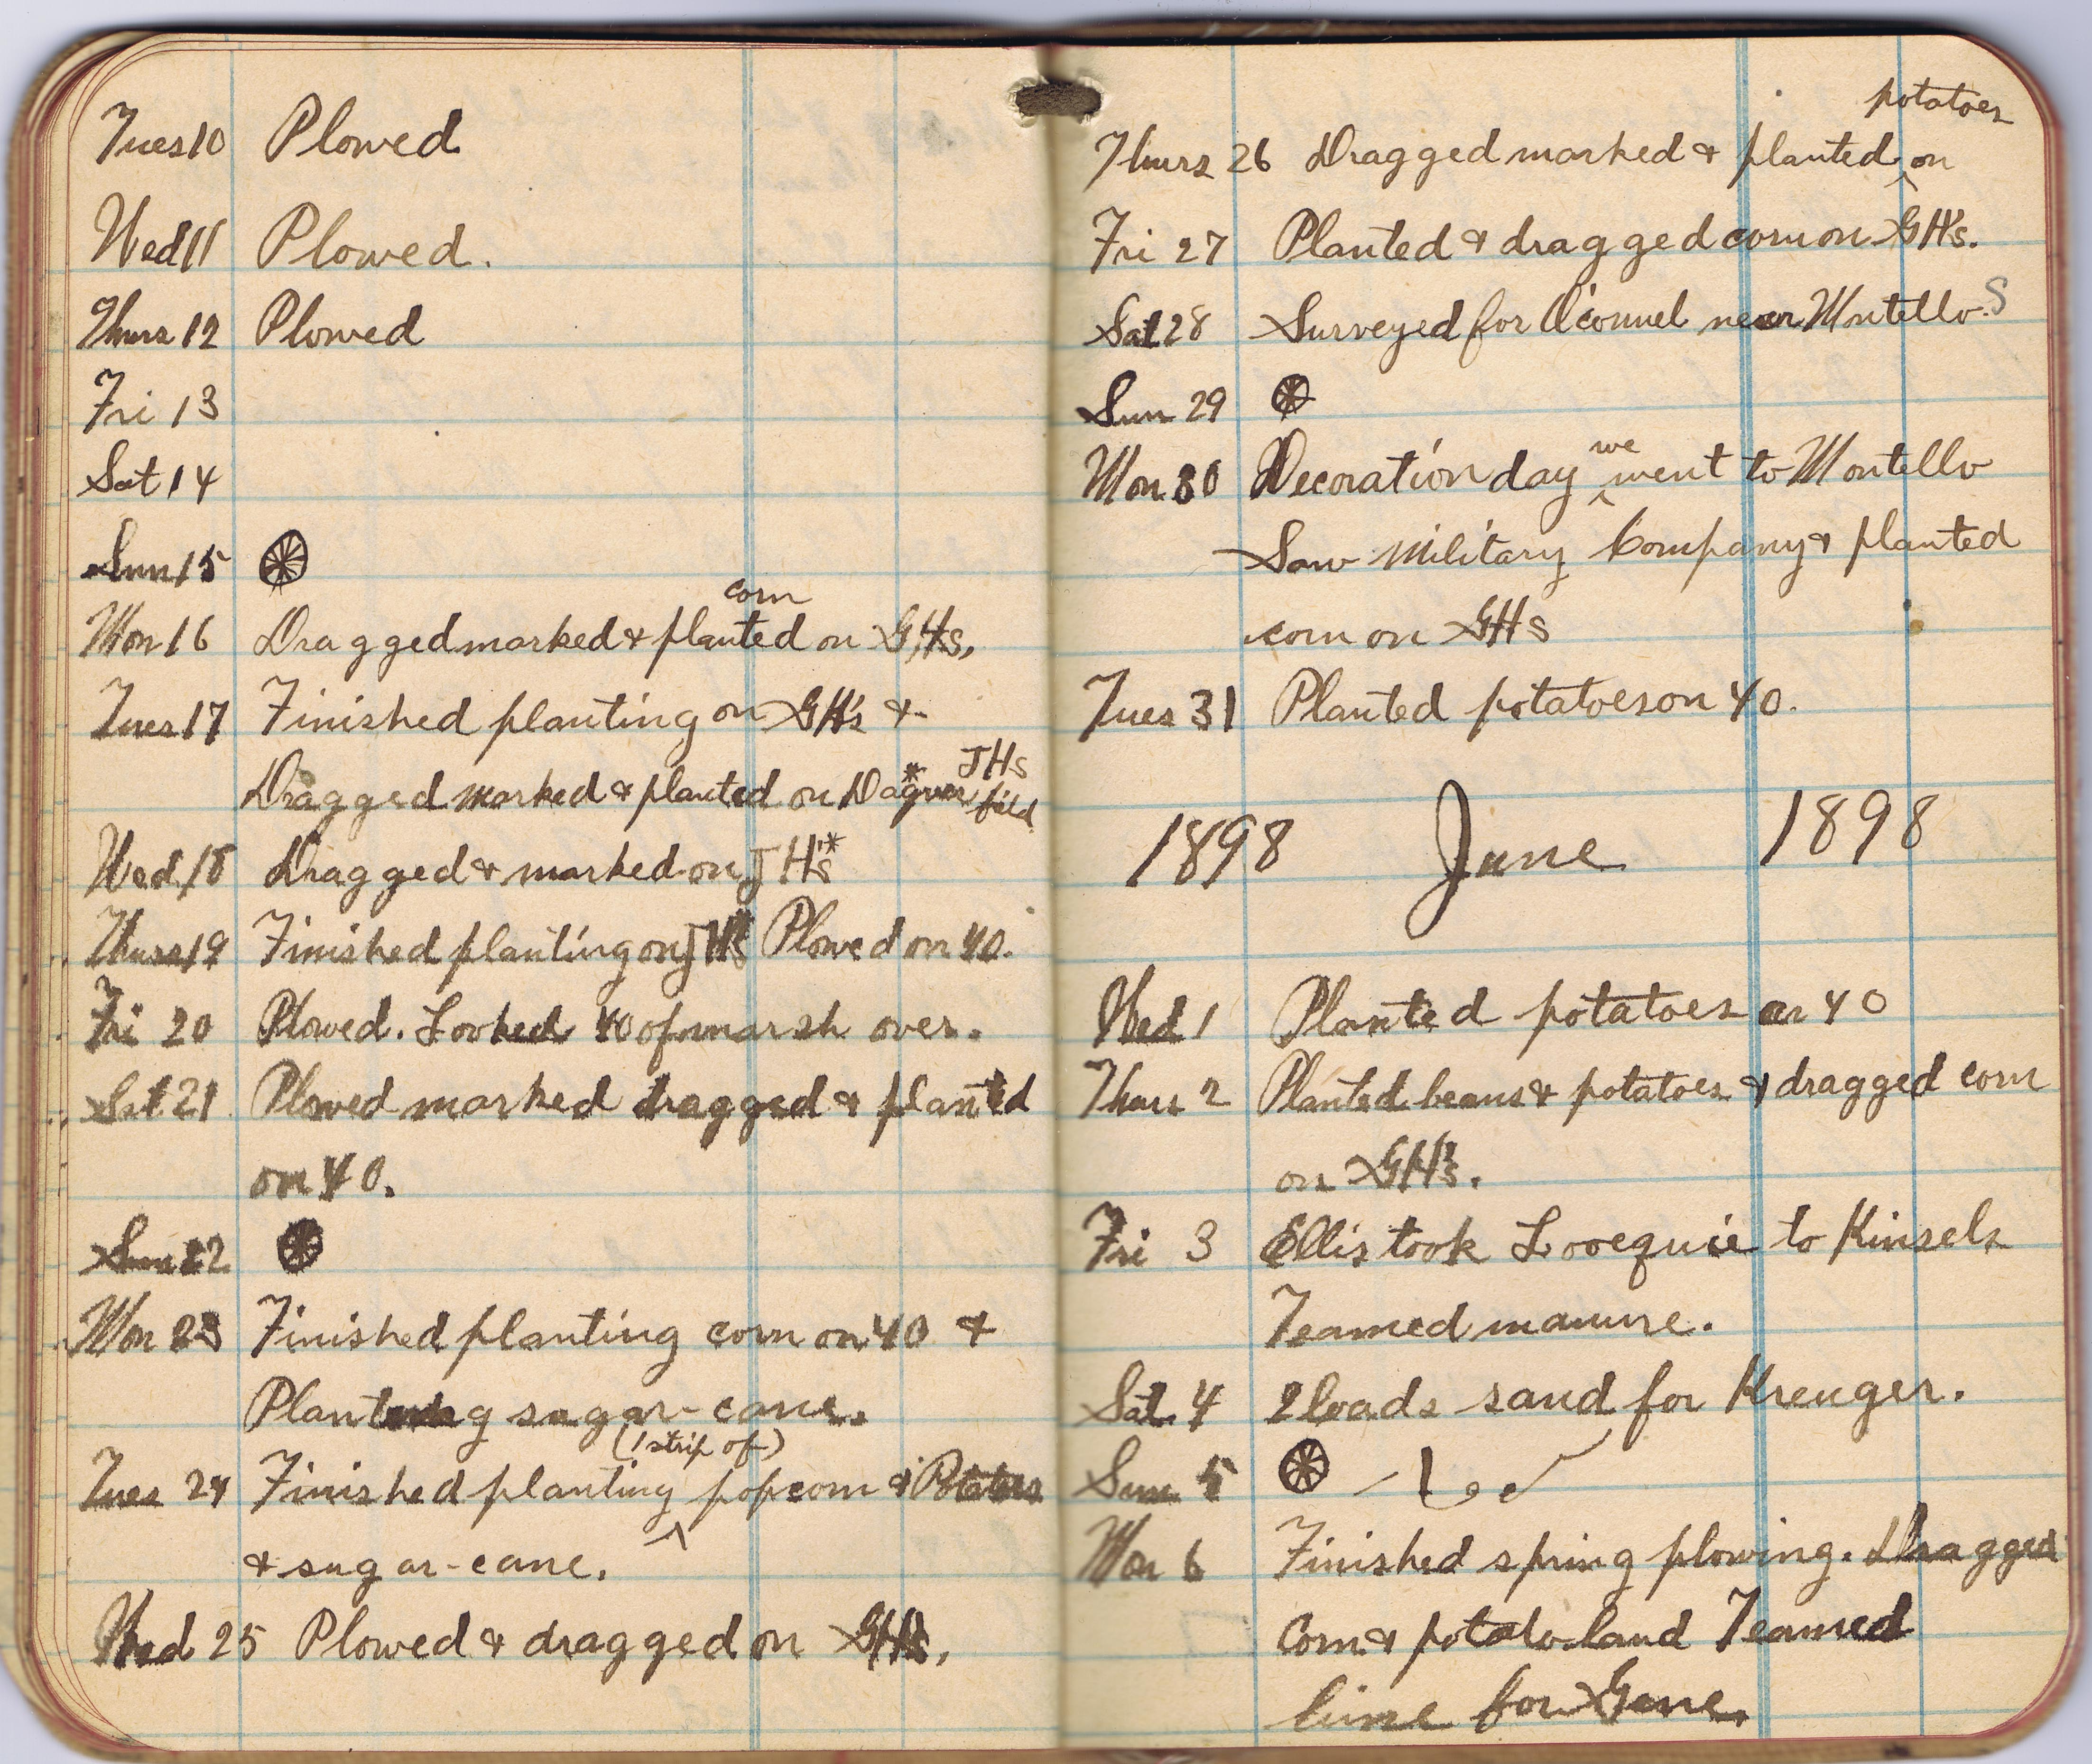 Tues 10 Plowed
Wed 11 Plowed.
Thurs 12 Plowed
Fri 13
Sat 14
Sun 15
corn
Mon 16 Dragged marked & planted on GHs,
Tues 17 Finished planting on GH's &
JHs
Dragged marked & planted on * field
Wed 18 Dragged & marked on JH's*
Thurs 19 Finished planting on JH's Plowed on 40.
Fri 20 Plowed. Looked 40 of marsh over.
Sat 21 Plowed marked dragged & planted
on 40.
Sun 22
Mon 23 Finished planting corn on 40 &
Planting sugar-cane.
(1 strip of)
Tues 24 Finished planting ^ popcorn & Potatoes
& sugar-cane.
Wed 25 Plowed & dragged on GHs.
potatoes
Thurs 26 Dragged marked & planted ^ on
Fri 27 Planted & dragged corn on GH's.
Sat 28 Surveyed for O'connel near Montello. S
Sun 29
we
Mon 30 Decoration day ^ went to Montello
Saw Military Company & planted
corn on GHs
Tues 31 Planted potatoes on 40.
1898 June 1898
Wed 1 Planted potatoes on 40
Thurs 2 Planted beans & potatoes & dragged corn
on GH's.
Fri 3 Ellis took to Kinsels
Teamed manure.
Sat. 4 2 loads sand for Kreuger.
Sun 5
Mon 6 Finished spring plowing. Dragged
Corn & potato-land Teamed
lime for Gene.